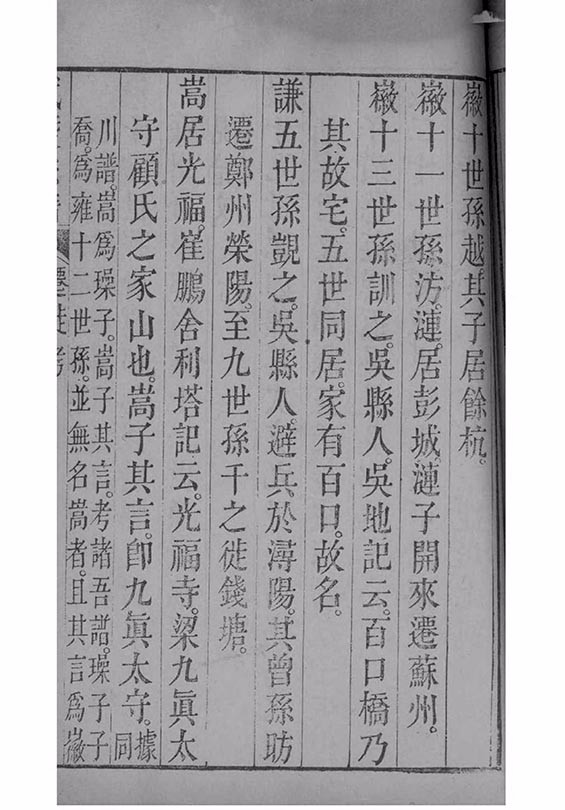 徽十世孫越。其子居餘杭。
徽十一世孫汸。漣。居彭城。漣子開來遷蘇州。
徽十三世孫訓之。吳縣人。吳地記云。百口橋乃
其故宅。五世同居。家有百口。故名。
謙五世孫覬之。吳縣人。避兵於潯陽。其曾孫昉
遷鄭州榮陽。至九世孫千之徙錢塘。
嵩居光福。崔鵬舍利塔記云。光福寺。梁九眞太
守顧氏之家山也。嵩子其言。卽九眞太守。據同
川譜。嵩爲璪子。嵩子其言。考諸吾譜。璪子子
喬。爲雍十二世孫。並無名嵩者。且其言爲徽
遷徙考